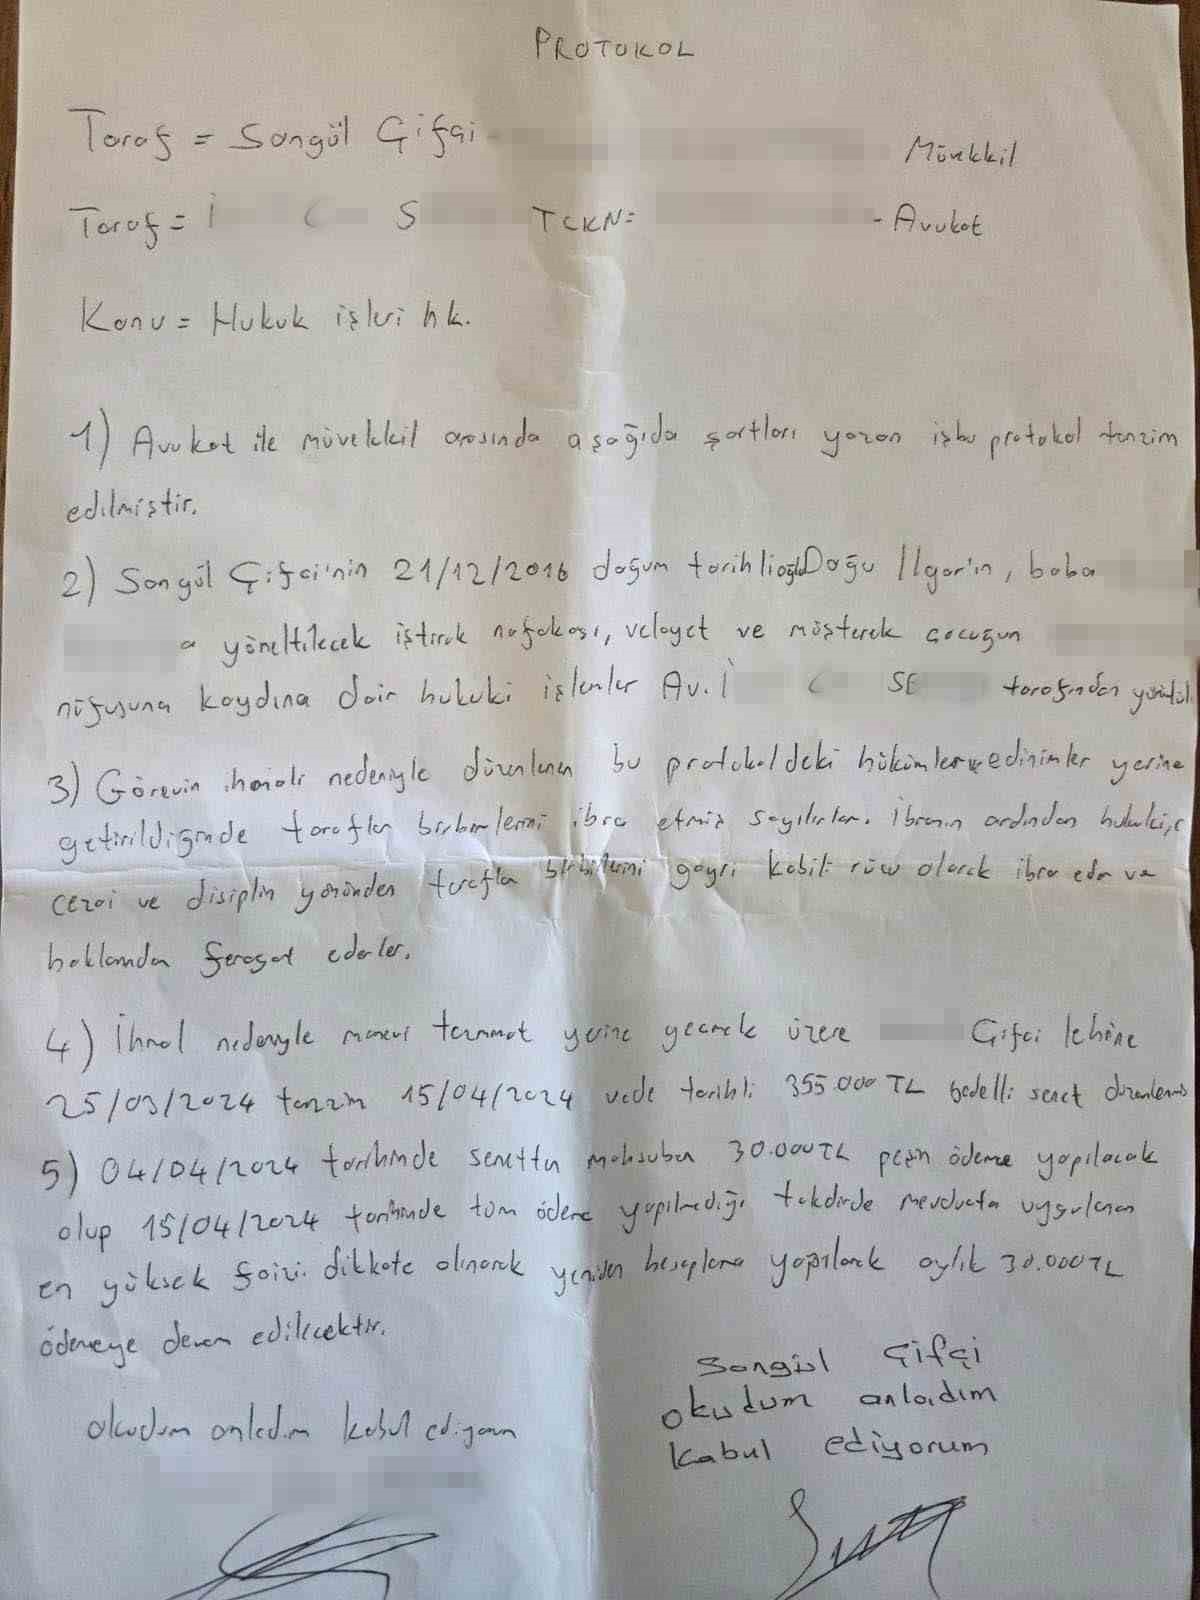 PROTOKOL
Taraf = Songül Çifçi Müvekkil
Taraf = İ C S TCKN= - Avukat
Konu = Hukuk işleri hk.
1) Avukat ile müvekkil arasında aşağıda şartları yazan işbu protokol tanzim
edilmiştir.
2) Songül Çifçi'nin 21/12/2016 doğum tarihli oğlu Doğu Ilgar'ın, baba
a yöneltilecek iştirak nafakası, velayet ve müşterek çocuğun
nüfusuna kaydına dair hukuki işlemler Av. İ C SE tarafından
3) Görevin ihmali nedeniyle düzenlenen bu protokoldeki hükümler ve edinimler yerine
getirildiğinde taraflar birbirlerini ibra etmiş sayılırlar. İbranın ardından hukuki,
cezai ve disiplin yönünden taraflar birbirlerini gayri kabili rücu olarak ibra eder ve
haklarından feragat ederler.
4) İhmal nedeniyle manevi tazminat yerine geçmek üzere Çifçi lehine
25/03/2024 tanzim 15/04/2024 vade tarihli 355.000 TL bedelli senet düzenlenmiş
5) 04/04/2024 tarihinde senetten mahsuben 30.000 TL peşin ödeme yapılacak
olup 15/04/2024 tarihinde tüm ödeme yapılmadığı takdirde mevduata uygulanan
en yüksek faizi dikkate alınarak yeniden hesaplama yapılarak aylık 30.000 TL
ödemeye devam edilecektir.
Songül Çifçi
okudum anladım
kabul ediyorum
okudum anladım kabul ediyorum